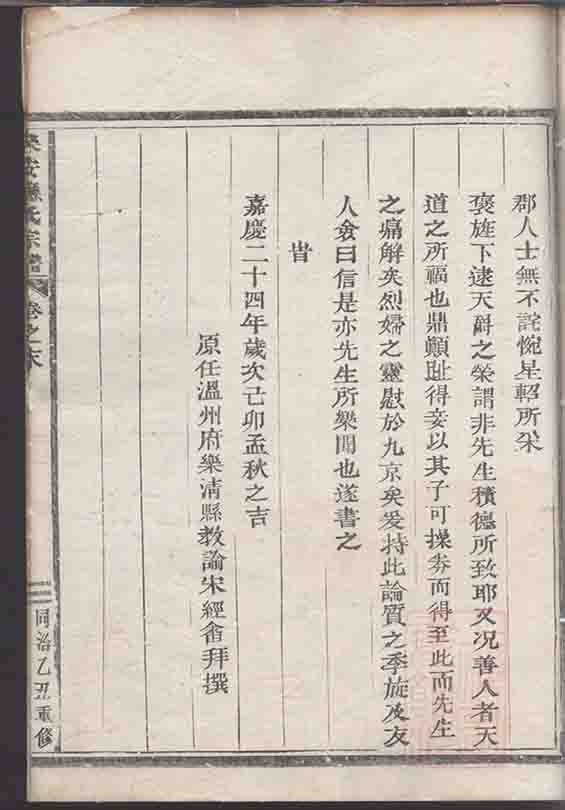 郡人士無不詫惋星軺所采
褒旌下逮天爵之榮謂非先生積德所致耶又况善人者天
道之所福也鼎顚趾得妾以其子可操劵而得至此而先生
之痛解矣烈婦之靈慰於九京矣爰持此論質之季旋及友
人僉曰信是亦先生所樂聞也遂書之
旹
嘉慶二十四年歲次己卯孟秋之吉
原任溫州府樂淸縣教諭宋經畬拜撰
安孫氏宗譜
卷之末
同治乙丑重修